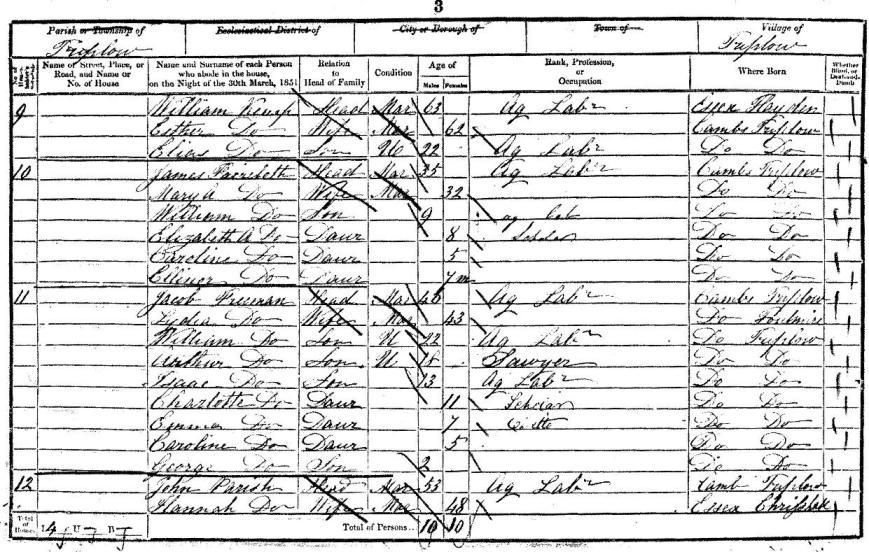 3
Parish or Township of Ecclesiastical District of City or Borough of Town of Village of
Triplow Triplow
Name of Street, Place, or Road, and Name or No. of House Name and Surname of each Person who abode in the house, on the Night of the 30th March, 1851 Relation to Head of Family Condition Age of Males Females Rank, Profession, or Occupation Where Born Whether Blind, or Deaf-and-Dumb
9 William Kemp Head Mar 63 Ag Labr Essex
Esther Do Wife Mar 62 Cambs Triplow
Elias Do Son U 22 Ag Labr Do Do
10 James Head Mar 35 Ag Labr Cambs Triplow
Mary A Do Wife Mar 32 Do Do
William Do Son 9 ag lab Do Do
Elizabeth A Do Daur 8 Do Do
Caroline Do Daur 5 Do Do
Ellinor Do Daur 7 m Do Do
11 Jacob Freeman Head Mar 46 Ag Labr Cambs Triplow
Lydia Do Wife Mar 43 Do Foulmire
William Do Son U 22 Ag Labr Do Triplow
Arthur Do Son U 18 Sawyer Do Do
Isaac Do Son 13 Ag Labr Do Do
Charlotte Do Daur 11 Scholar Do Do
Emma Do Daur 7 Do Do
Caroline Do Daur 5 Do Do
George Do Son 2 Do Do
12 John Parish Head Mar 53 Ag Labr Camb Triplow
Hannah Do Wife Mar 48 Essex
Total of Houses I 4 U B Total of Persons 10 10